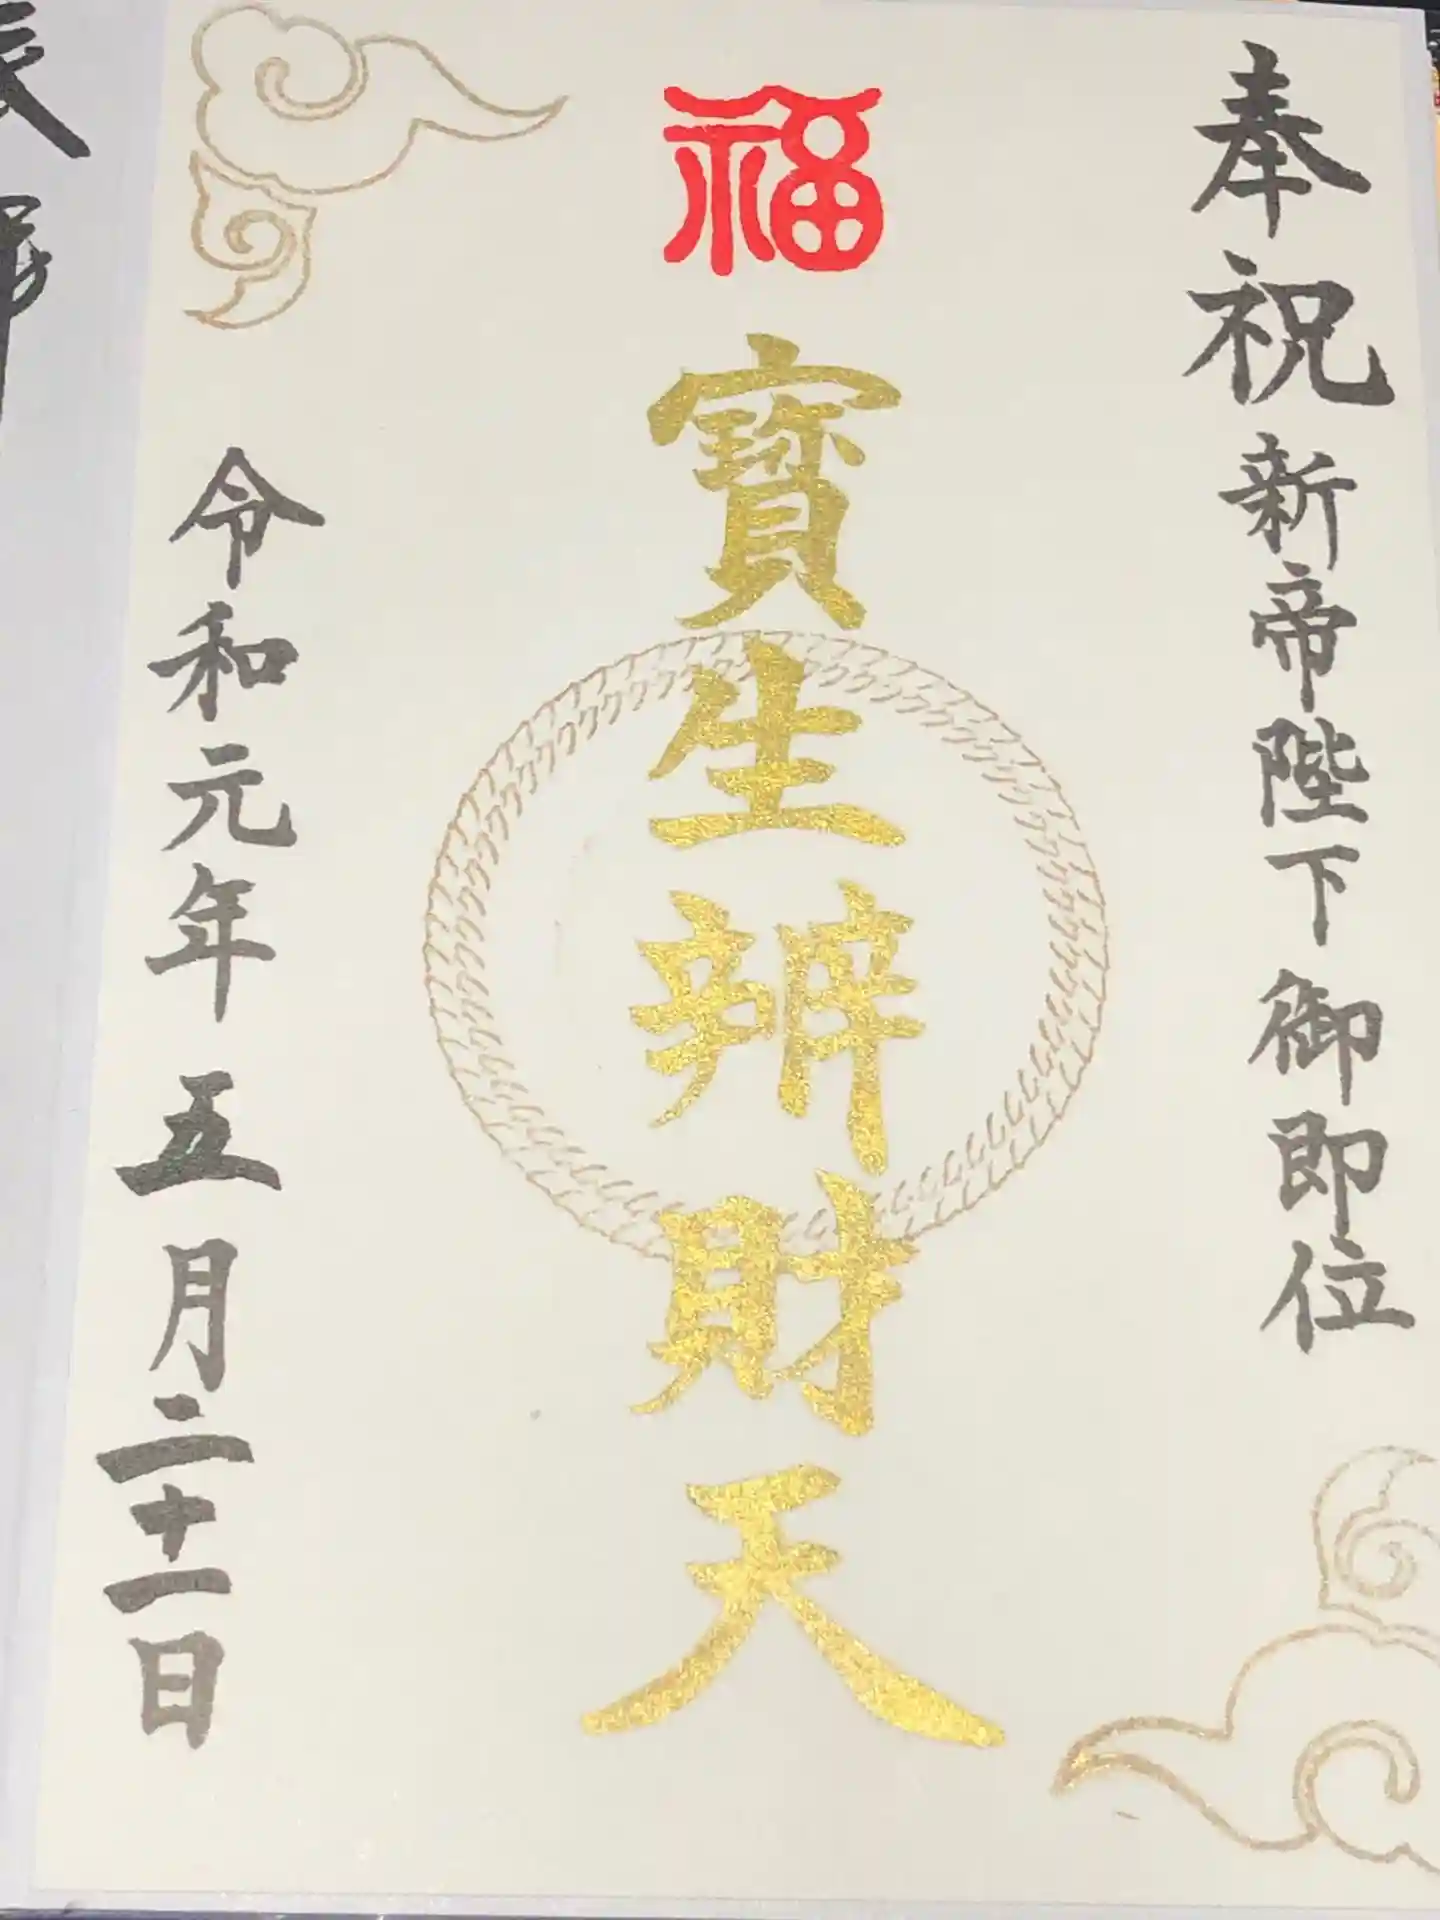 奉祝新帝陛下御即位
福
寶生辨財天
令和元年五月二十一日